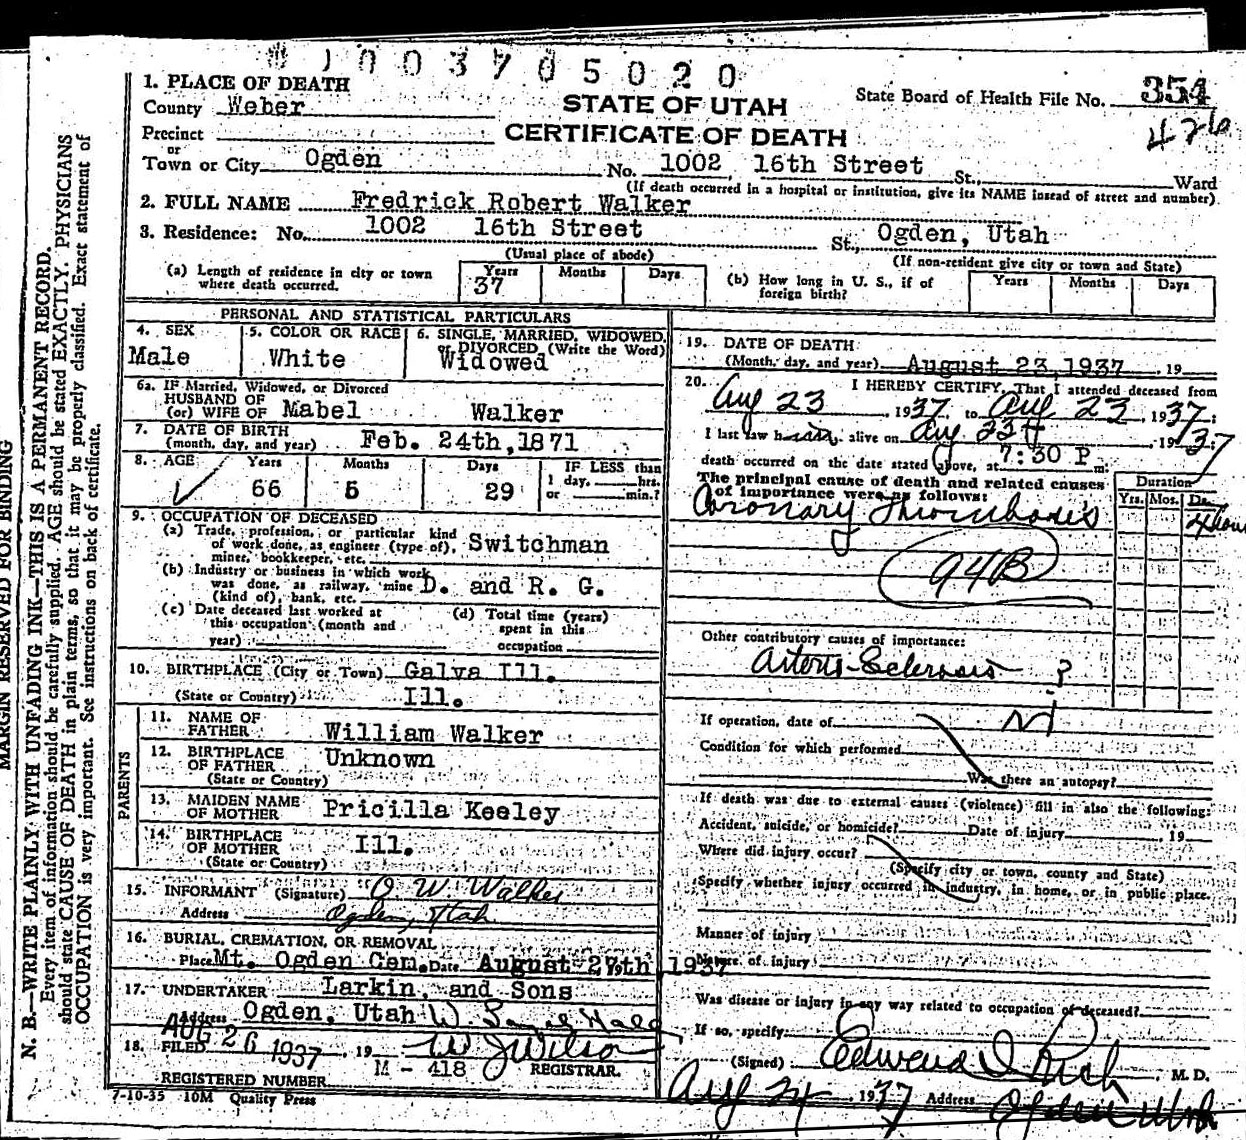 1003705020
1. PLACE OF DEATH
County Weber
STATE OF UTAH
CERTIFICATE OF DEATH
State Board of Health File No. 354
426
Precinct
or
Town or City Ogden No. 1002 16th Street St. Ward
(If death occurred in a hospital or institution, give its NAME instead of street and number)
2. FULL NAME Fredrick Robert Walker
3. Residence: No. 1002 16th Street St., Ogden, Utah
(Usual place of abode) (If non-resident give city or town and State)
(a) Length of residence in city or town where death occurred. Years 37 Months Days
(b) How long in U. S., if of foreign birth? Years Months Days
PERSONAL AND STATISTICAL PARTICULARS
4. SEX Male
5. COLOR OR RACE White
6. SINGLE, MARRIED, WIDOWED, or DIVORCED (Write the Word) Widowed
6a. IF Married, Widowed, or Divorced
HUSBAND OF
(or) WIFE OF Mabel Walker
7. DATE OF BIRTH
(month, day, and year) Feb. 24th, 1871
8. AGE Years 66 Months 5 Days 29 IF LESS than 1 day, hrs. or min.?
9. OCCUPATION OF DECEASED
(a) Trade, profession, or particular kind
of work done, as engineer (type of), Switchman
miner, bookkeeper, etc.
(b) Industry or business in which work
was done, as railway, mine D. and R. G.
(kind of), bank, etc.
(c) Date deceased last worked at this occupation (month and year)
(d) Total time (years) spent in this occupation
10. BIRTHPLACE (City or Town) Galva Ill.
(State or Country) Ill.
PARENTS
11. NAME OF FATHER William Walker
12. BIRTHPLACE OF FATHER Unknown
(State or Country)
13. MAIDEN NAME OF MOTHER Pricilla Keeley
14. BIRTHPLACE OF MOTHER Ill.
(State or Country)
15. INFORMANT (Signature) O. W. Walker
Address Ogden, Utah
16. BURIAL, CREMATION, OR REMOVAL
Place Mt. Ogden Cem. Date August 27th, 1937
17. UNDERTAKER Larkin and Sons
Address Ogden, Utah
18. FILED AUG 26 1937, 19 W J Wilson
M - 418 REGISTRAR.
REGISTERED NUMBER
7-10-35 10M Quality Press
19. DATE OF DEATH
(Month, day, and year) August 23, 1937, 19
20. I HEREBY CERTIFY, That I attended deceased from
Aug 23, 1937, to Aug 23, 1937;
I last saw him alive on Aug 23, 1937;
death occurred on the date stated above, at 7:30 P m.
The principal cause of death and related causes
of importance were as follows:
Duration
Yrs. Mos. Da.
Coronary Thrombosis
94B
Other contributory causes of importance:
Arterio-Sclerosis ?
If operation, date of
Condition for which performed
Was there an autopsy?
If death was due to external causes (violence) fill in also the following:
Accident, suicide, or homicide? Date of injury 19
Where did injury occur?
(Specify city or town, county and State)
Specify whether injury occurred in industry, in home, or in public place.
Manner of injury
Nature of injury
Was disease or injury in any way related to occupation of deceased?
If so, specify:
(Signed) Edward I Rich, M. D.
Aug 24, 1937 Address Ogden Utah
MARGIN RESERVED FOR BINDING
N. B.—WRITE PLAINLY WITH UNFADING INK—THIS IS A PERMANENT RECORD.
Every item of information should be carefully supplied. AGE should be stated EXACTLY. PHYSICIANS
should state CAUSE OF DEATH in plain terms, so that it may be properly classified. Exact statement of
OCCUPATION is very important. See instructions on back of certificate.